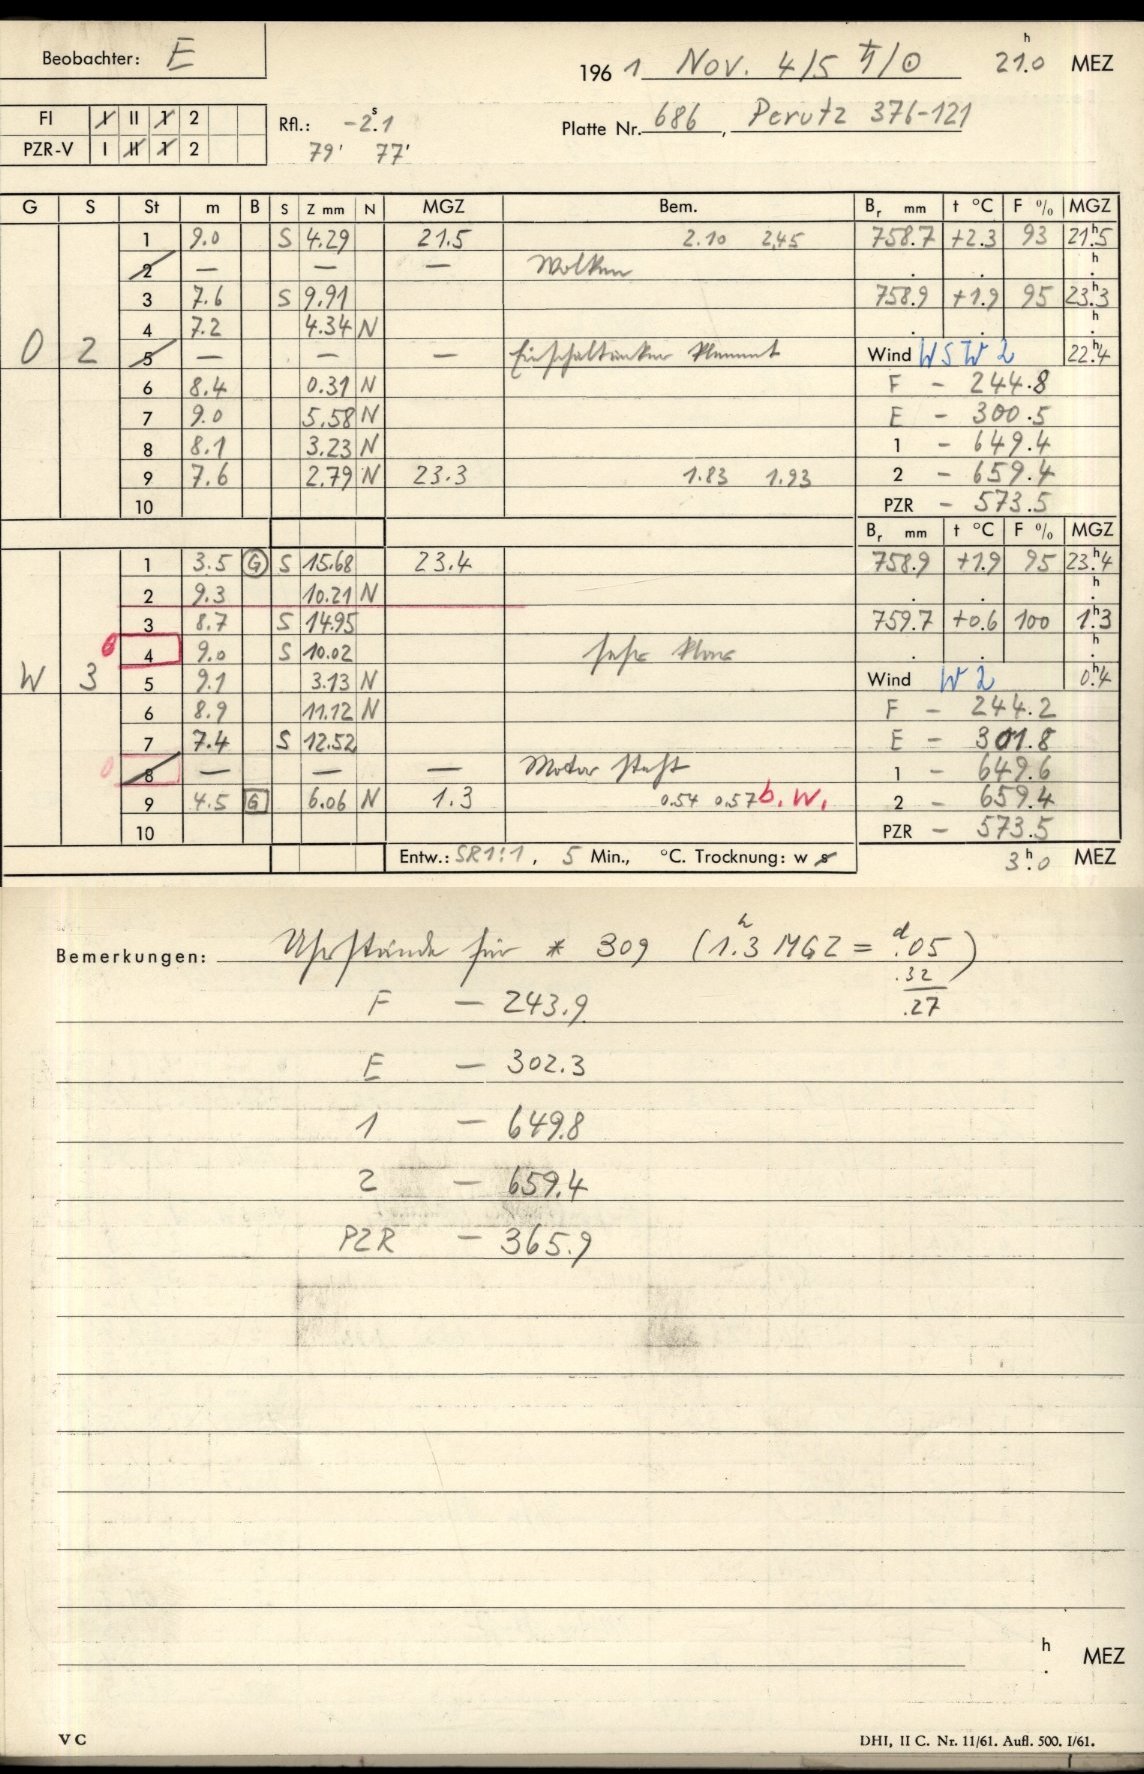 Beobachter: E
1961 Nov. 4/5 ♄/☉ 21ʰ.0 MEZ
FI I II 1 2
PZR-V I II 1 2
Rfl.: -2ˢ.1
79' 77'
Platte Nr. 686, Perutz 376-121
G S St m B S Z mm N MGZ Bem. Bᵣ mm t °C F % MGZ
1 9.0 S 4.29 21.5 2.10 2.45 758.7 +2.3 93 21ʰ.5
2 — — — Wolken . . ʰ.
3 7.6 S 9.91 758.9 +1.9 95 23ʰ.3
4 7.2 4.34 N . . ʰ.
O 2 5 — — — Einschaltanker klemmt Wind WSW 2 22ʰ.4
6 8.4 0.31 N F - 244.8
7 9.0 5.58 N E - 300.5
8 8.1 3.23 N 1 - 649.4
9 7.6 2.79 N 23.3 1.83 1.93 2 - 659.4
10 PZR - 573.5
Bᵣ mm t °C F % MGZ
1 3.5 G S 15.68 23.4 758.9 +1.9 95 23ʰ.4
2 9.3 10.21 N . . ʰ.
3 8.7 S 14.95 759.7 +0.6 100 1ʰ.3
0 4 9.0 S 10.02 . . ʰ.
W 3 5 9.1 3.13 N Wind W 2 0ʰ.4
6 8.9 11.12 N F - 244.2
7 7.4 S 12.52 E - 301.8
0 8 — — — Motor steht 1 - 649.6
9 4.5 G 6.06 N 1.3 0.54 0.57 b.W. 2 - 659.4
10 PZR - 573.5
Entw.: SR 1:1, 5 Min., °C. Trocknung: w s 3ʰ.0 MEZ
Bemerkungen: Uhrstände für * 309 (1ʰ.3 MGZ = ᵈ.05)
.32
.27
F - 243.9
E - 302.3
1 - 649.8
2 - 659.4
PZR - 365.9
ʰ. MEZ
VC
DHI, II C. Nr. 11/61. Aufl. 500. I/61.